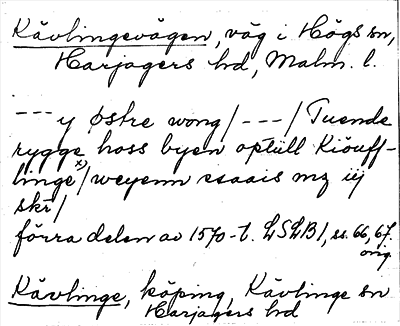 Kävlingevägen, väg i Högs sn,
Harjagers hd, Malm. l.
---y østre wong/---/Tuende
rygge hoss byen optüll Kiöuff-
linge x)/weyenn saais mz iij
skr/
förra delen av 1570-t. LSLB1, ss. 66, 67.
orig
Kävlinge, köping, Kävlinge sn
Harjagers hd